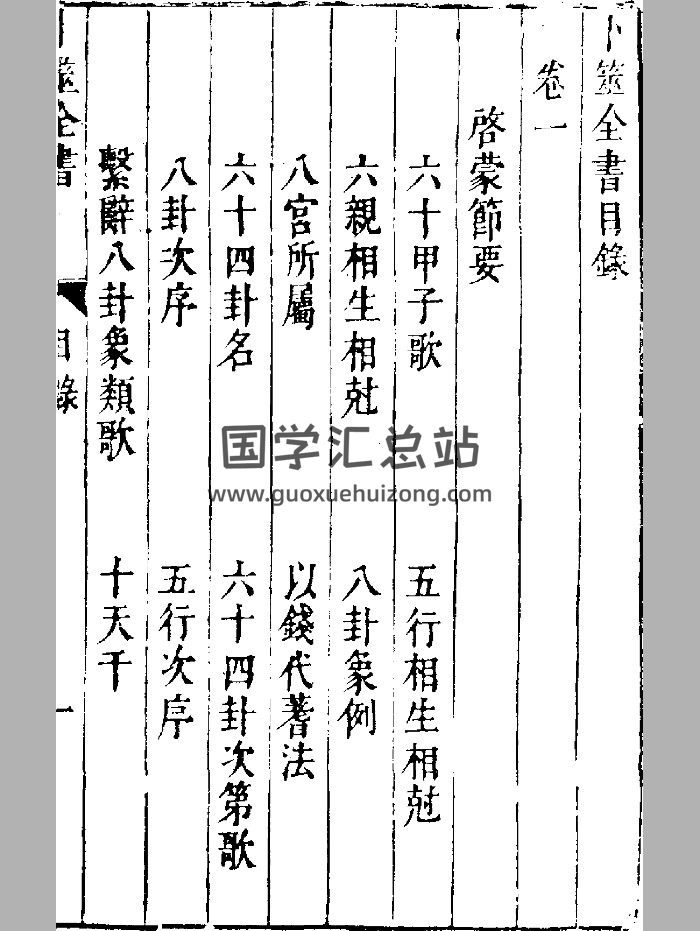 卜筮全書目錄
卷一
啓蒙節要
六十甲子歌 五行相生相尅
六親相生相尅 八卦象例
八宮所屬 以錢代蓍法
六十四卦名 六十四卦次第歌
八卦次序 五行次序
繫辭八卦象類歌 十天干
卜筮全書 目錄 一
国学汇总站
www.guoxuehuizong.com